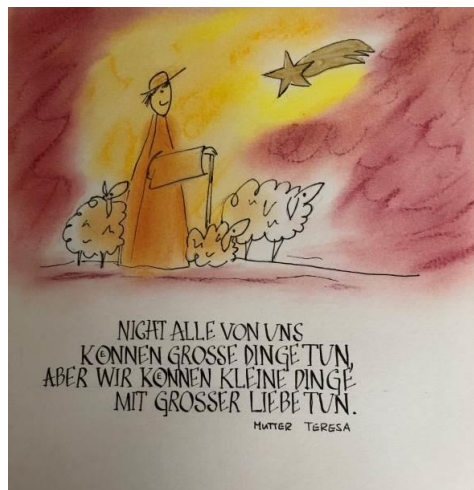 NICHT ALLE VON UNS
KÖNNEN GROSSE DINGE TUN,
ABER WIR KÖNNEN KLEINE DINGE
MIT GROSSER LIEBE TUN.
MUTTER TERESA